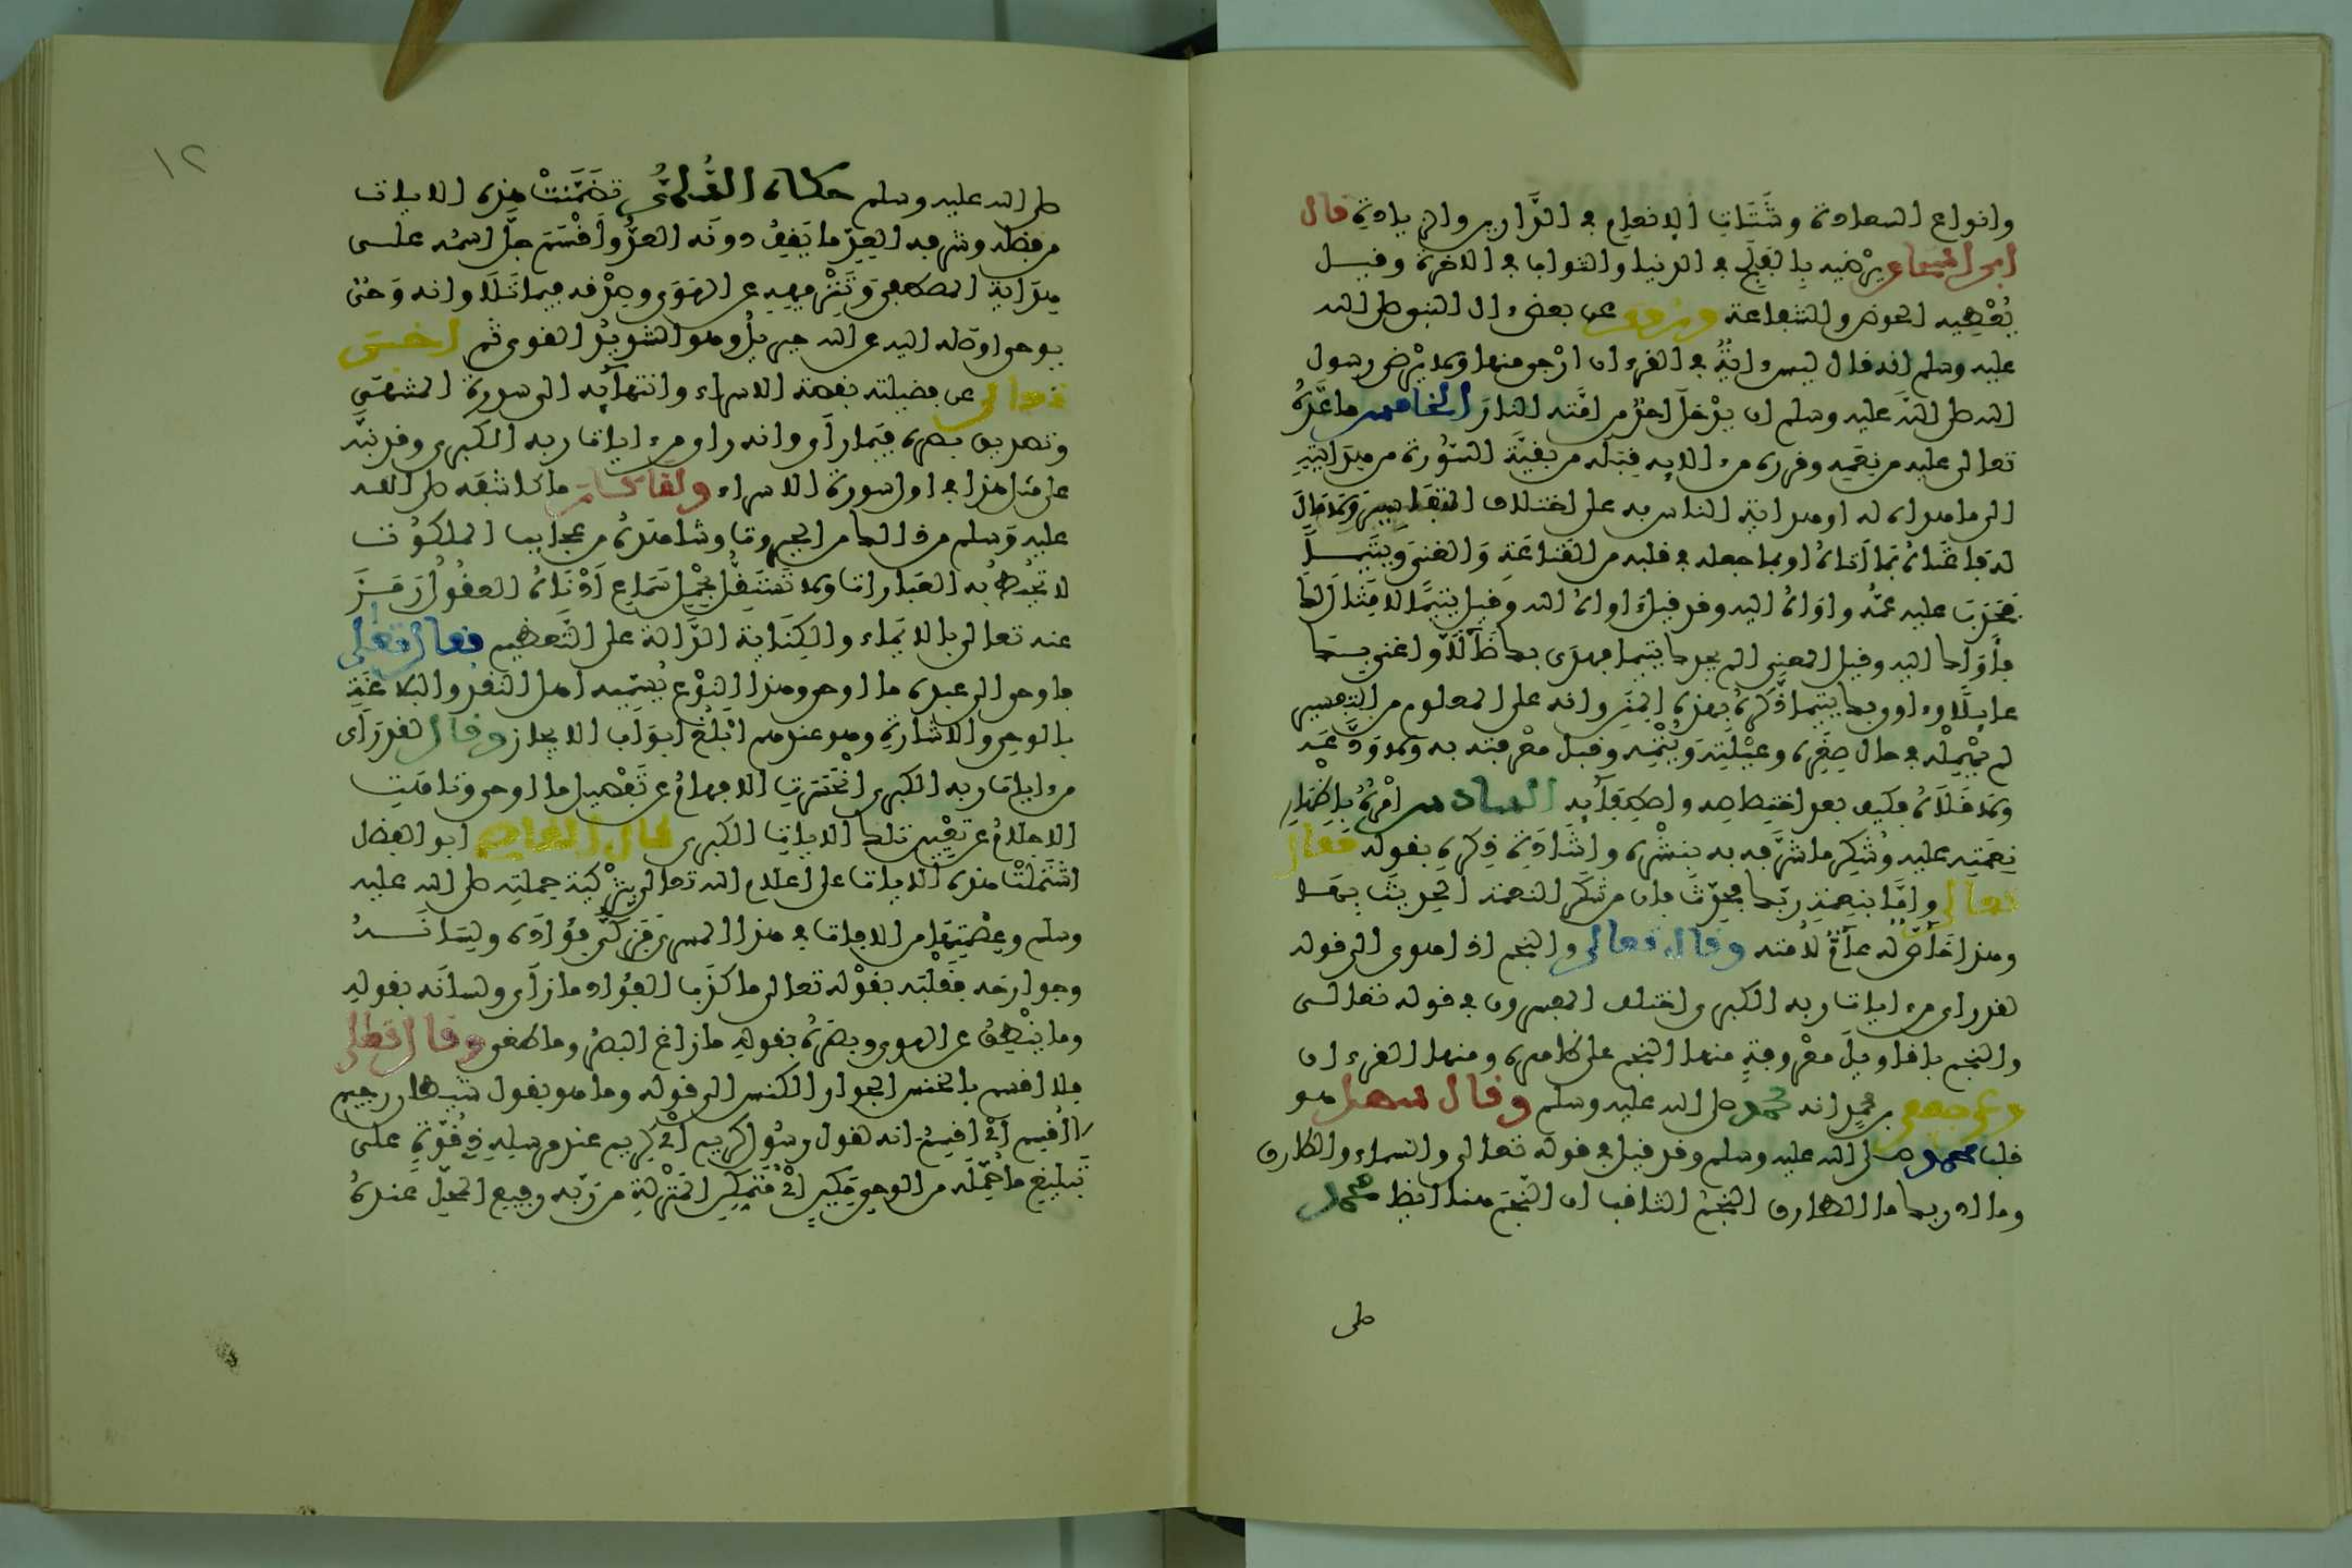 وانواع السعادة وشتات الانعام في الدارين والزيادة قال
ابن اسحاق يرضيه بالفلج في الدنيا والثواب في الاخرة وقيل
يعطيه الحوض والشفاعة وروي عن بعض ءال النبي صلى الله
عليه وسلم انه قال ليس ءاية في القرءان ارجى منها ولا يرضى رسول
الله صلى الله عليه وسلم ان يدخل احد من امته النار الخامس ما عده
تعالى عليه من نعمه وقرره من ءالايه قبله من بقية السورة من هدايته
الى ما هداه له او هداية الناس به على اختلاف التفاسير ولا مال
له فاغناه بما اتاه او بما جعله في قلبه من القناعة والغنى ويتيما
فحدب عليه عمه واواه اليه وقد قيل اواه الى الله وقيل يتيما لا مثال لك
فأواك اليه وقيل المعنى الم يجدك يتيما فهدى بك ضالا واغنى بك
عايلا وءاوى بك يتيما ذكره بهذه المنن وانه على المعلوم من التفسير
لم يهمله في حال صغره وعيلته ويتمه وقبل معرفته به ولا ودعه
ولا قلاه فكيف بعد اختصاصه واصطفايه السادس امره باظهار
نعمته عليه وشكر ما شرفه به بنشره واشادة ذكره بقوله فقال
تعالى واما بنعمة ربك فحدث فان من شكر النعمة الحديث بها
وهذا خاص له عام لامته وقال تعالى والنجم اذا هوى الى قوله
لقد راى من ءايات ربه الكبرى اختلف المفسرون في قوله تعالى
والنجم باقاويل معروفة منها النجم على ظاهره ومنها القرءان
وعن جعفر بن محمد انه محمد صلى الله عليه وسلم وقال سهل هو
قلب محمد صلى الله عليه وسلم وقد قيل في قوله تعالى والسماء والطارق
وما ادريك ما الطارق النجم الثاقب ان النجم هنا ايضا محمد
صلى
١٢
صلى الله عليه وسلم حكاه السلمي تضمنت هذه الايات
من فضله وشرفه العد ما يقف دونه العد واقسم جل اسمه على
هداية المصطفى وتنزيهه عن الهوى وصدقه فيما تلا وانه وحي
يوحى اوصله اليه عن الله جبريل وهو الشديد القوى ثم اخبر
تعالى عن فضيلته بقصة الاسراء وانتهايه الى سدرة المنتهى
وتصديق بصره فيما راى وانه راى من ءايات ربه الكبرى وقد نبه
على مثل هذا في اول سورة الاسراء ولما كان ما كاشفه صلى الله
عليه وسلم من ذلك من الجبروت وشاهده من عجايب الملكوت
لا تحيط به العبارات ولا تستقل بحمل سماع ادناه العقول رمز
عنه تعالى بالايماء والكناية الدالة على التعظيم فقال تعالى
فاوحى الى عبده ما اوحى وهذا النوع يسميه اهل النقد والبلاغة
بالوحي والاشارة وهو عندهم ابلغ ابواب الايجاز وقال لقد راى
من ءايات ربه الكبرى انحسرت الافهام عن تفصيل ما اوحى وتاهت
الاحلام عن تعيين تلك الايات الكبرى قال القاضي ابو الفضل
اشتملت هذه الايات على اعلام الله تعالى بتزكية جملته صلى الله عليه
وسلم وعصمتها من الافات في هذا المسرى فزكى فؤاده ولسانه
وجوارحه فقلبه بقوله تعالى ما كذب الفؤاد ما راى ولسانه بقوله
وما ينطق عن الهوى وبصره بقوله ما زاغ البصر وما طغى وقال تعالى
فلا اقسم بالخنس الجوار الكنس الى قوله وما هو بقول شيطان رجيم
لا اقسم اي اقسم انه لقول رسول كريم اي كريم عند مرسله ذي قوة على
تبليغ ما حمله من الوحي مكين اي متمكن المنزلة من ربه رفيع المحل عنده